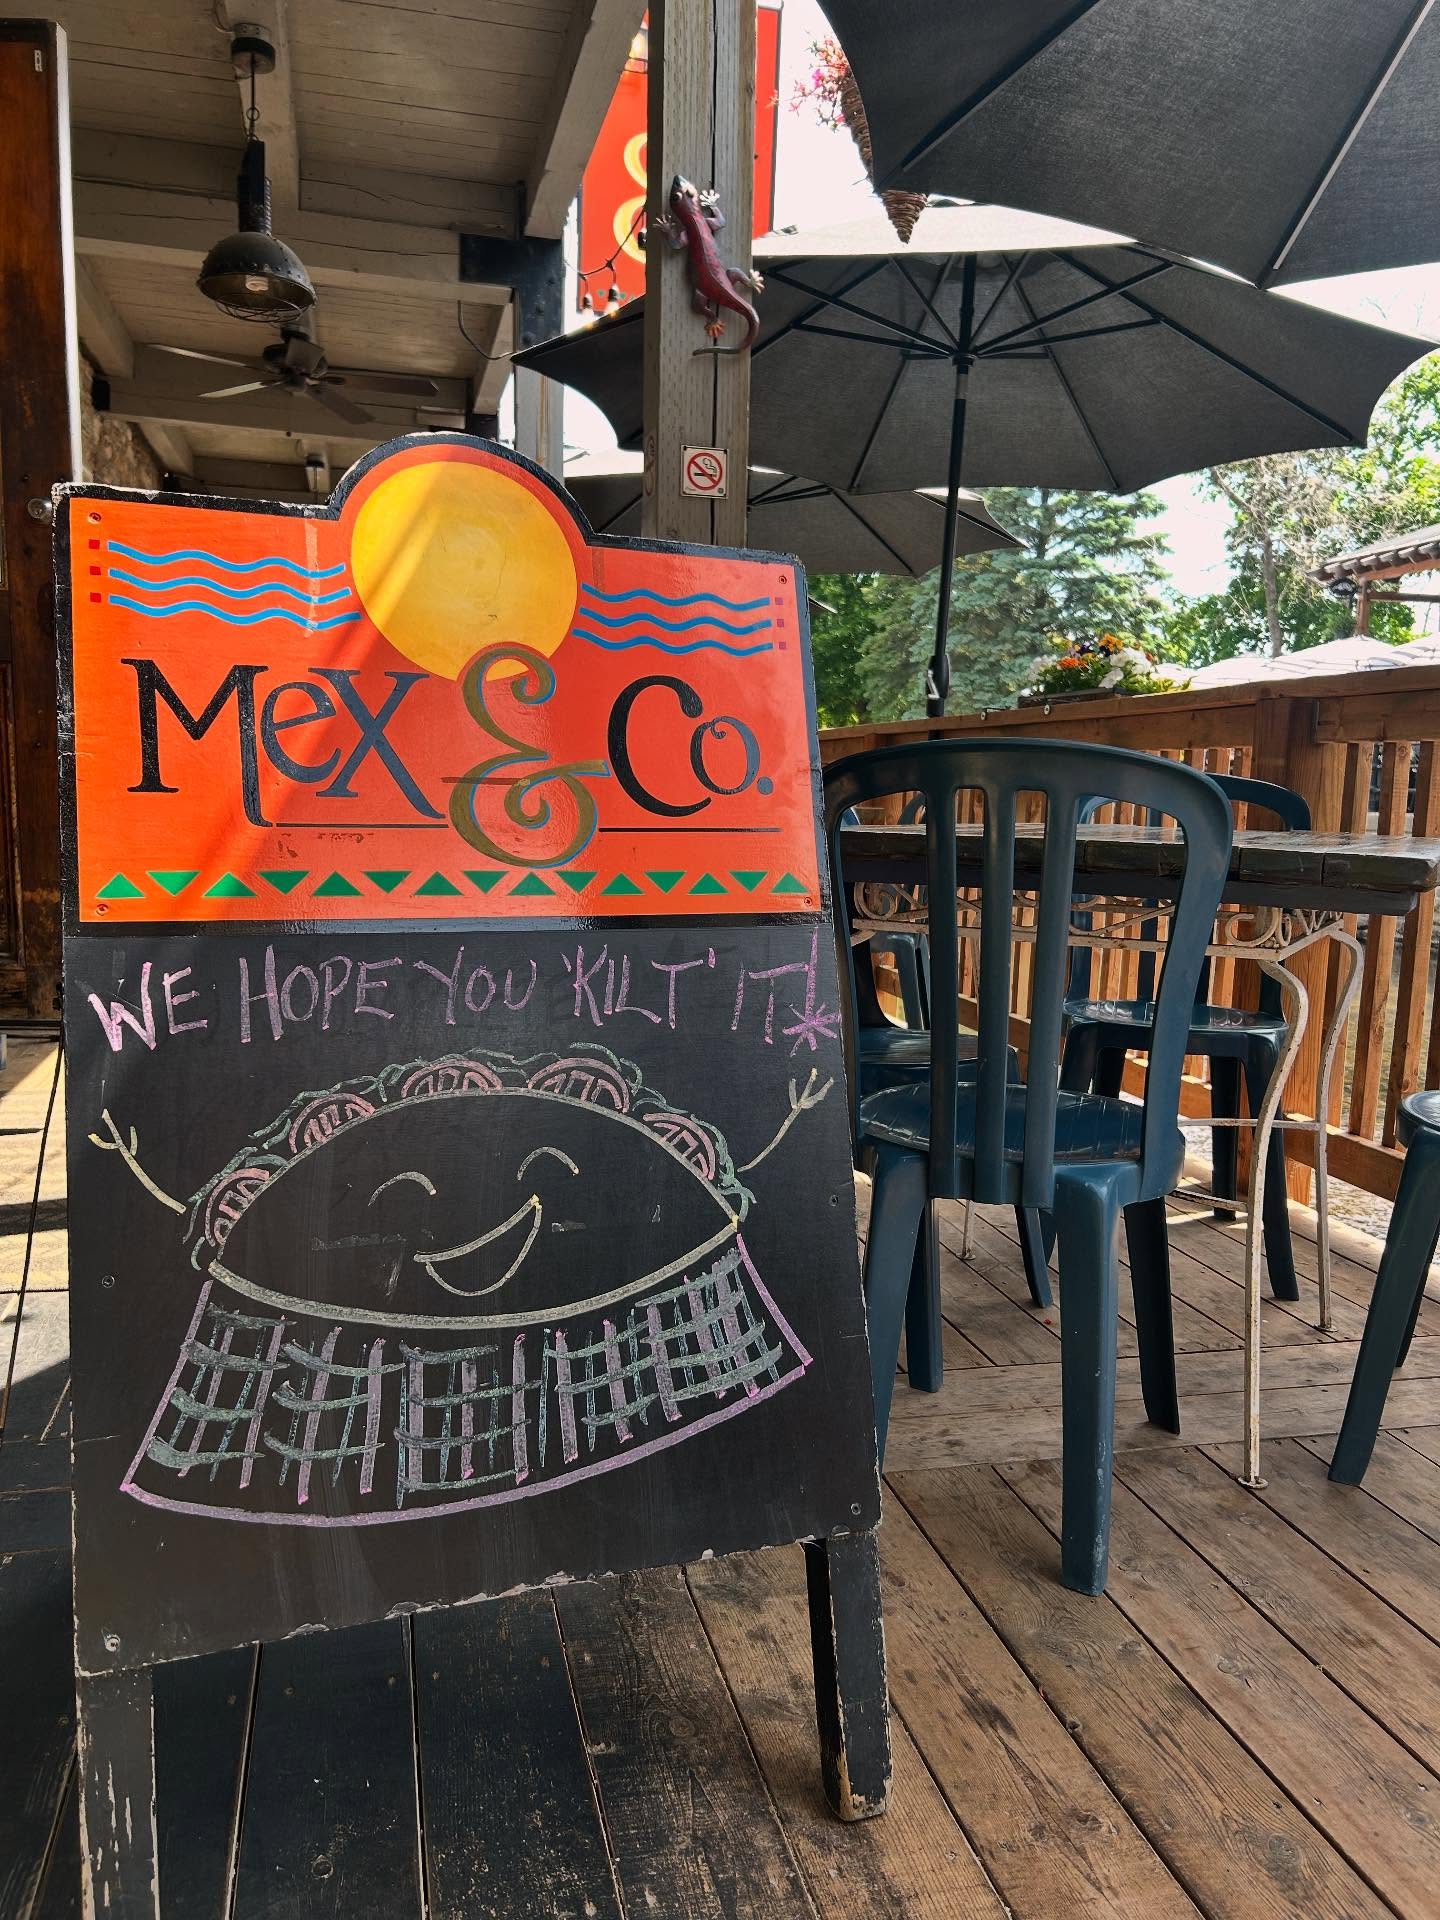 Mex & Co.
WE HOPE YOU 'KILT' IT!